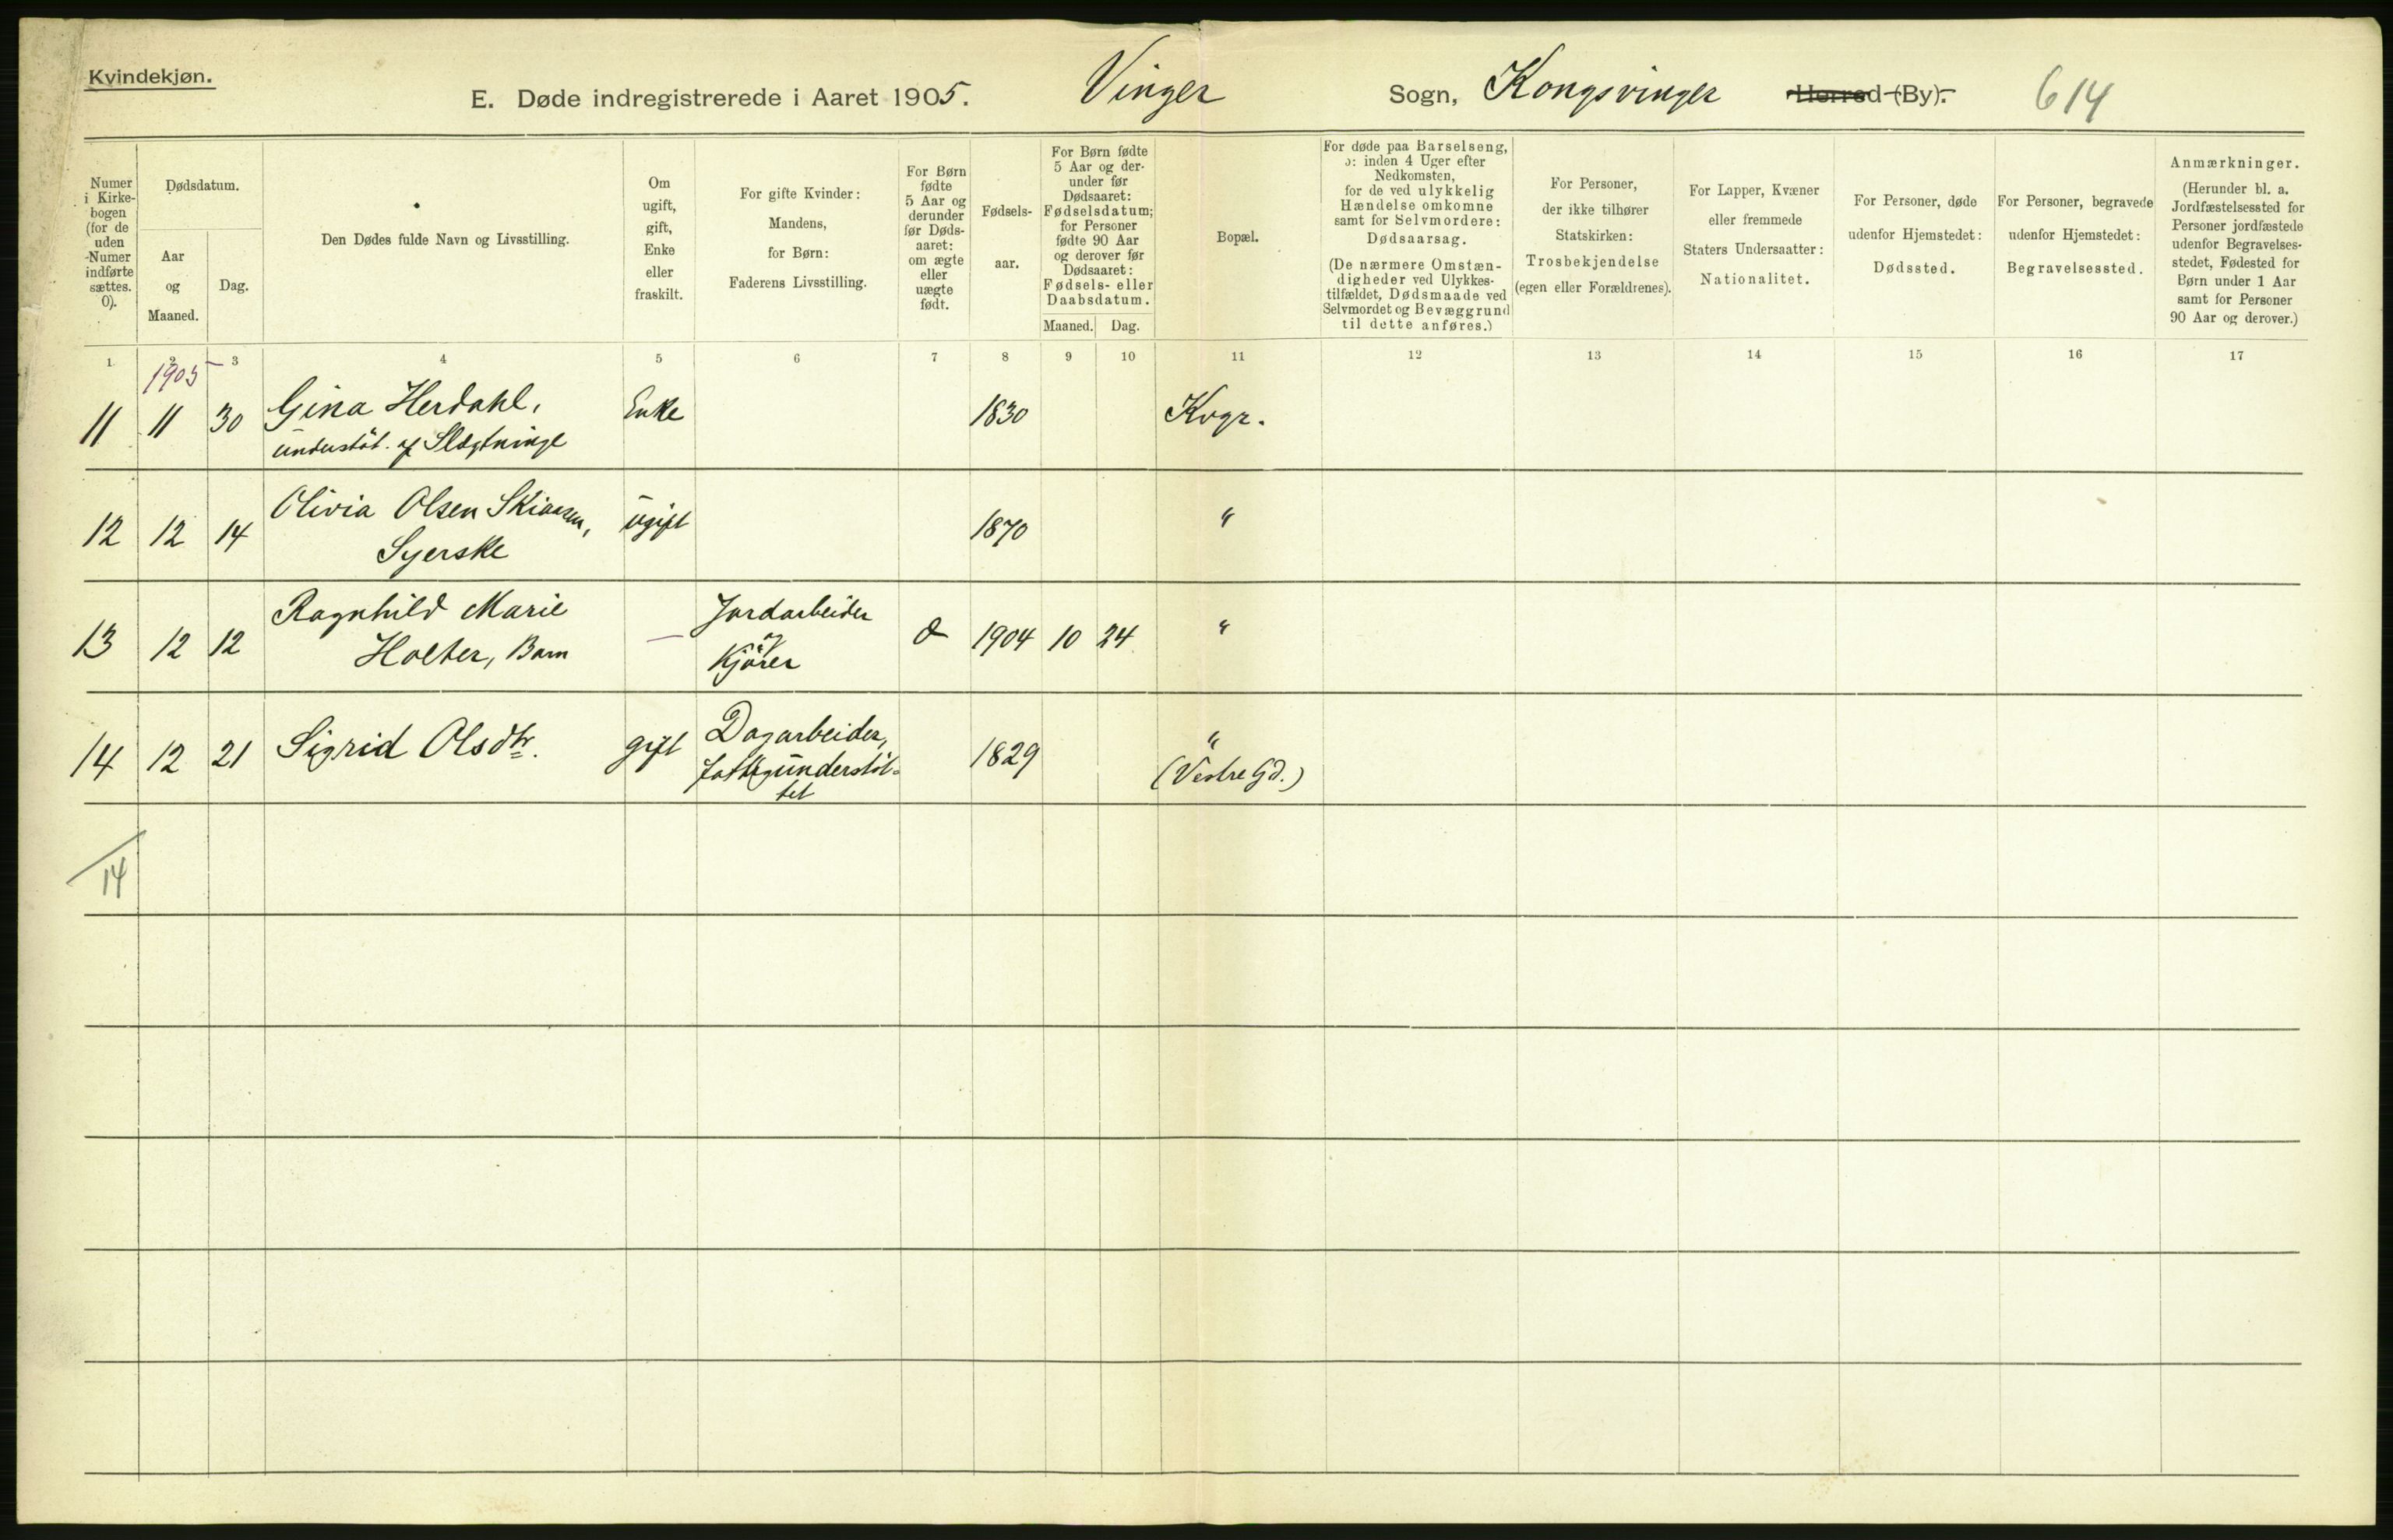 Kvindekjøn.
E. Døde indregistrerede i Aaret 1905. Vinger Sogn, Kongsvinger Herred (By). 614
Numer i Kirke-bogen (for de uden Numer indførte sættes. 0).
Dødsdatum.
Aar og Maaned.
Dag.
Den Dødes fulde Navn og Livsstilling.
Om ugift, gift, Enke eller fraskilt.
For gifte Kvinder: Mandens, for Børn: Faderens Livsstilling.
For Børn fødte 5 Aar og derunder før Døds-aaret: om ægte eller uægte født.
Fødsels-aar.
For Børn fødte 5 Aar og der-under før Dødsaaret: Fødselsdatum; for Personer fødte 90 Aar og derover før Dødsaaret: Fødsels- eller Daabsdatum.
Maaned. Dag.
Bopæl.
For døde paa Barselseng, ɔ: inden 4 Uger efter Nedkomsten, for de ved ulykkelig Hændelse omkomne samt for Selvmordere: Dødsaarsag.
(De nærmere Omstæn-digheder ved Ulykkes-tilfældet, Dødsmaade ved Selvmordet og Bevæggrund til dette anføres.)
For Personer, der ikke tilhører Statskirken: Trosbekjendelse (egen eller Forældrenes).
For Lapper, Kvæner eller fremmede Staters Undersaatter: Nationalitet.
For Personer, døde udenfor Hjemstedet: Dødssted.
For Personer, begravede udenfor Hjemstedet: Begravelsessted.
Anmærkninger.
(Herunder bl. a. Jordfæstelsessted for Personer jordfæstede udenfor Begravelses-stedet, Fødested for Børn under 1 Aar samt for Personer 90 Aar og derover.)
1 2 3 4 5 6 7 8 9 10 11 12 13 14 15 16 17
1905
11 11 30 Gina Herdahl, Enke 1830 Kvgr.
understöt. af Slægtninge
12 12 14 Olivia Olsen ugift 1870 "
Syerske
13 12 12 Ragnhild Marie — Jordarbeider 1904 10 24 "
Holter, Barn
og
Kjörer
14 12 21 Sigrid Olsdtr. gift Dagarbeider, 1829 "
fattigunderstöt-
tet
(Vestre Gd.)
14